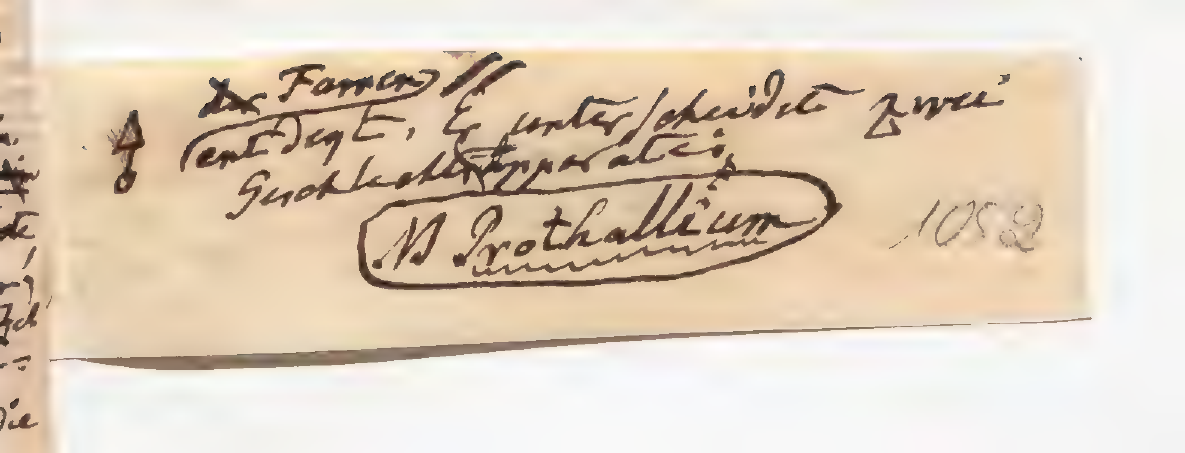 der Farren
entdeqt. Er unterscheidet zwei
Geschlechtsapparate:
N Prothallium
1052
Die